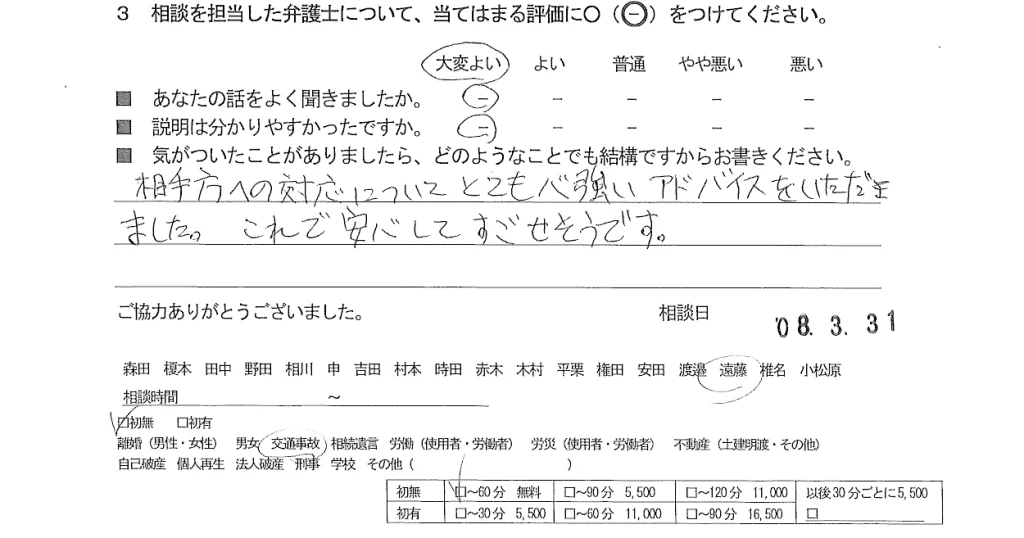 3 相談を担当した弁護士について、当てはまる評価に○（－）をつけてください。
大変よい よい 普通 やや悪い 悪い
■ あなたの話をよく聞きましたか。 － － － － －
■ 説明は分かりやすかったですか。 － － － － －
■ 気がついたことがありましたら、どのようなことでも結構ですからお書きください。
相手方への対応についてとても心強いアドバイスをいただき
ました。これで安心してすごせそうです。
ご協力ありがとうございました。 相談日 '08. 3. 31
森田 榎本 田中 野田 相川 申 吉田 村本 時田 赤木 木村 平栗 権田 安田 渡邉 遠藤 椎名 小松原
相談時間 ～
□初無 □初有
離婚（男性・女性） 男女 交通事故 相続遺言 労働（使用者・労働者） 労災（使用者・労働者） 不動産（土建明渡・その他）
自己破産 個人再生 法人破産 刑事 学校 その他（ ）
初無 □～60分 無料 □～90分 5,500 □～120分 11,000 以後30分ごとに5,500
初有 □～30分 5,500 □～60分 11,000 □～90分 16,500 □